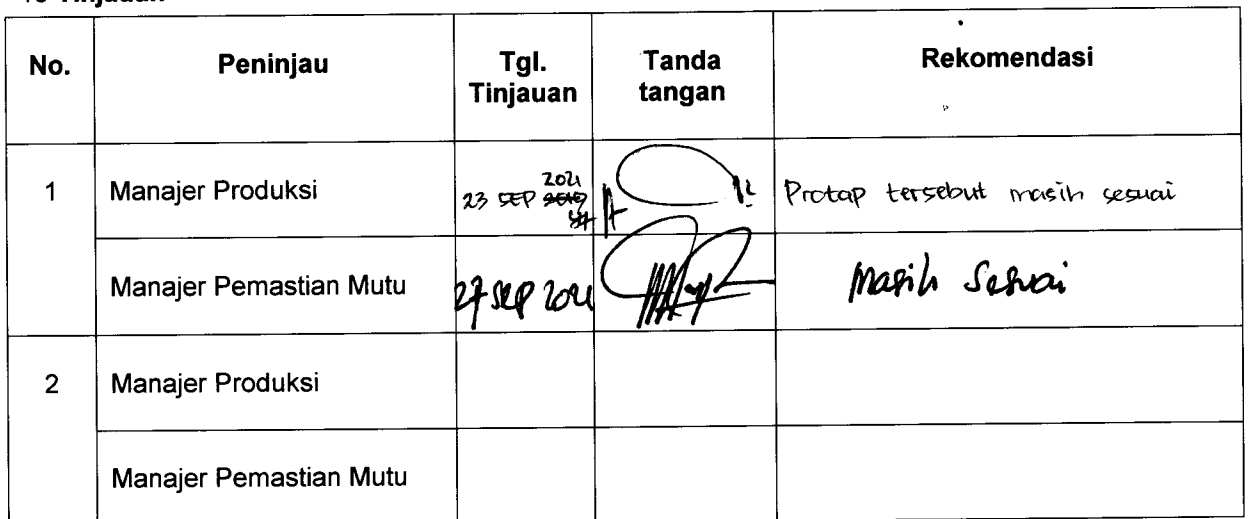 Tinjauan
No. Peninjau Tgl. Tinjauan Tanda tangan Rekomendasi
1 Manajer Produksi 23 SEP 2021 Protap tersebut masih sesuai
Manajer Pemastian Mutu 27 SEP 2021 Masih Sesuai
2 Manajer Produksi
Manajer Pemastian Mutu